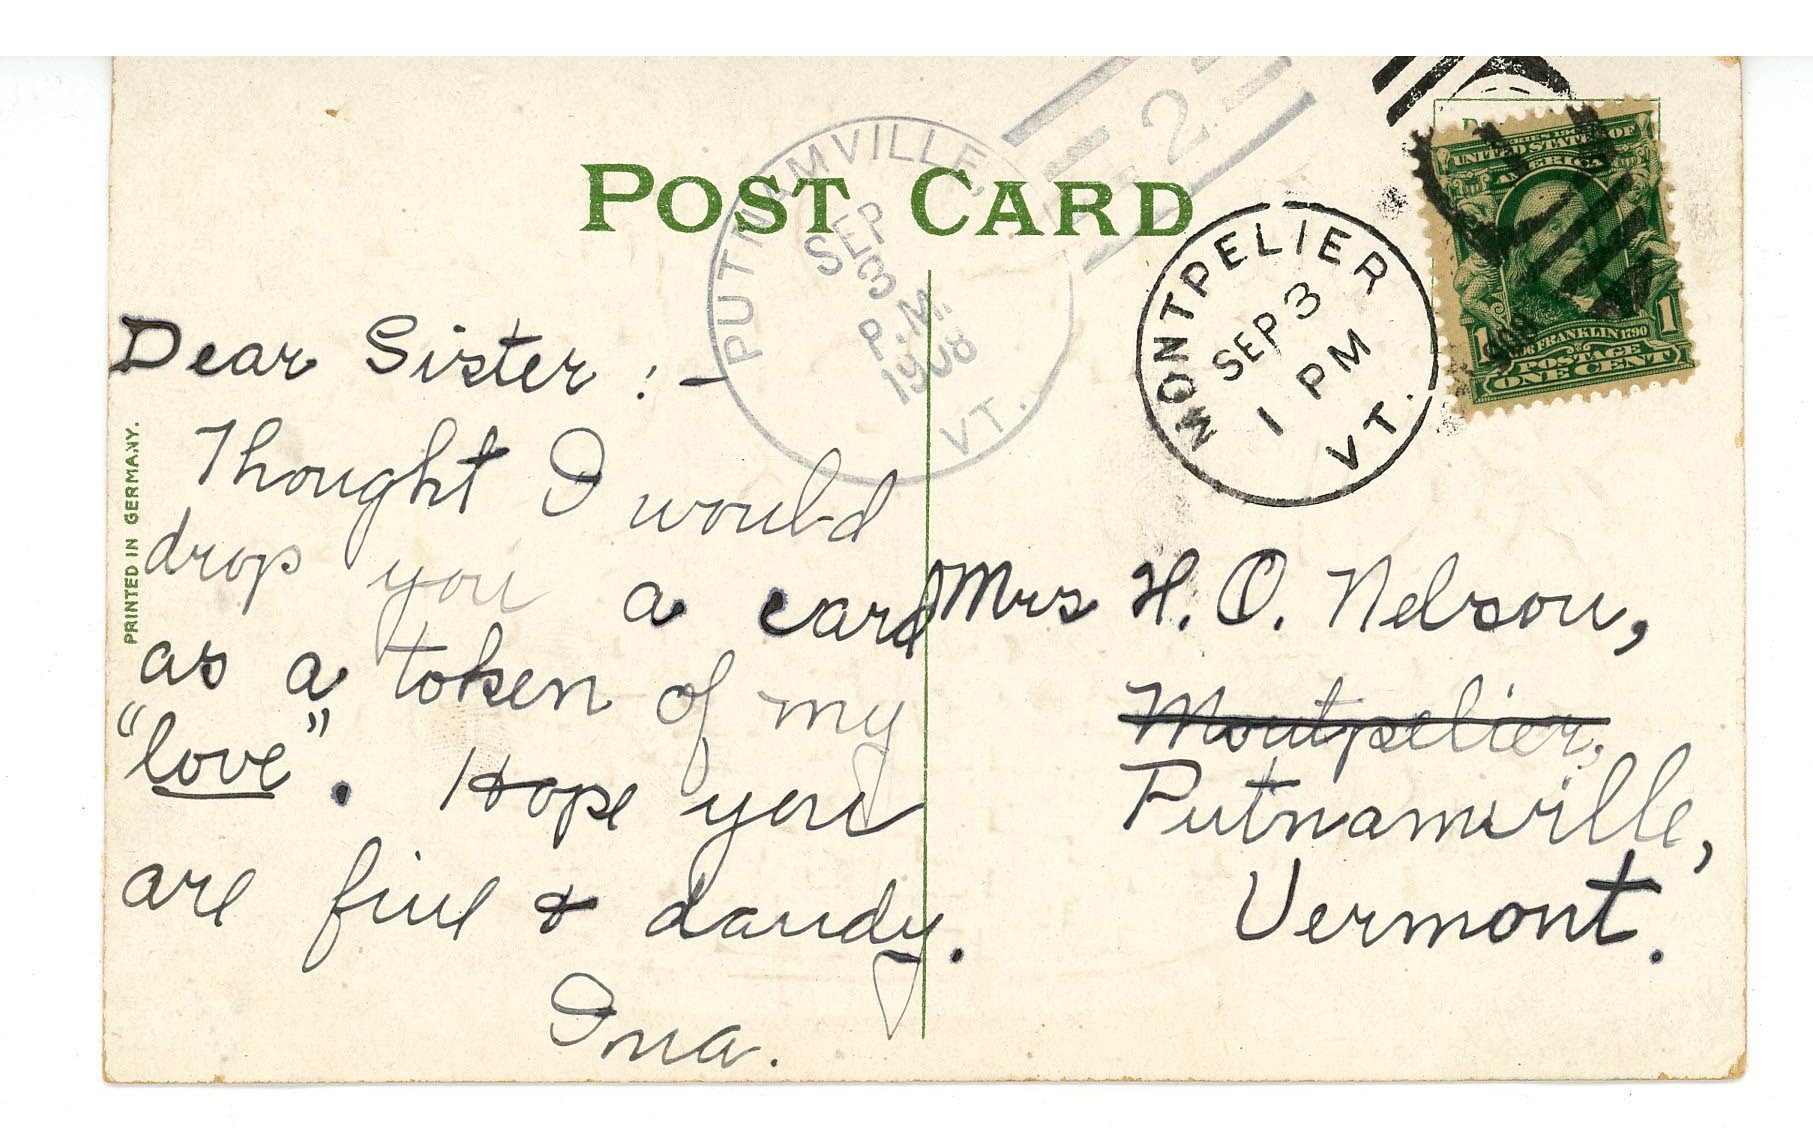 POST CARD
PUTNAMVILLE
SEP
3
P.M.
1908
VT.
2
MONTPELIER
SEP 3
1 PM
VT.
UNITED STATES OF
AMERICA
FRANKLIN 1790
1 1
POSTAGE
ONE CENT
PRINTED IN GERMANY.
Dear Sister : –
Thought I would
drop you a card
as a token of my
"love". Hope you
are fine & dandy.
Ina.
Mrs H. O. Nelson,
Montpelier,
Putnamville,
Vermont.